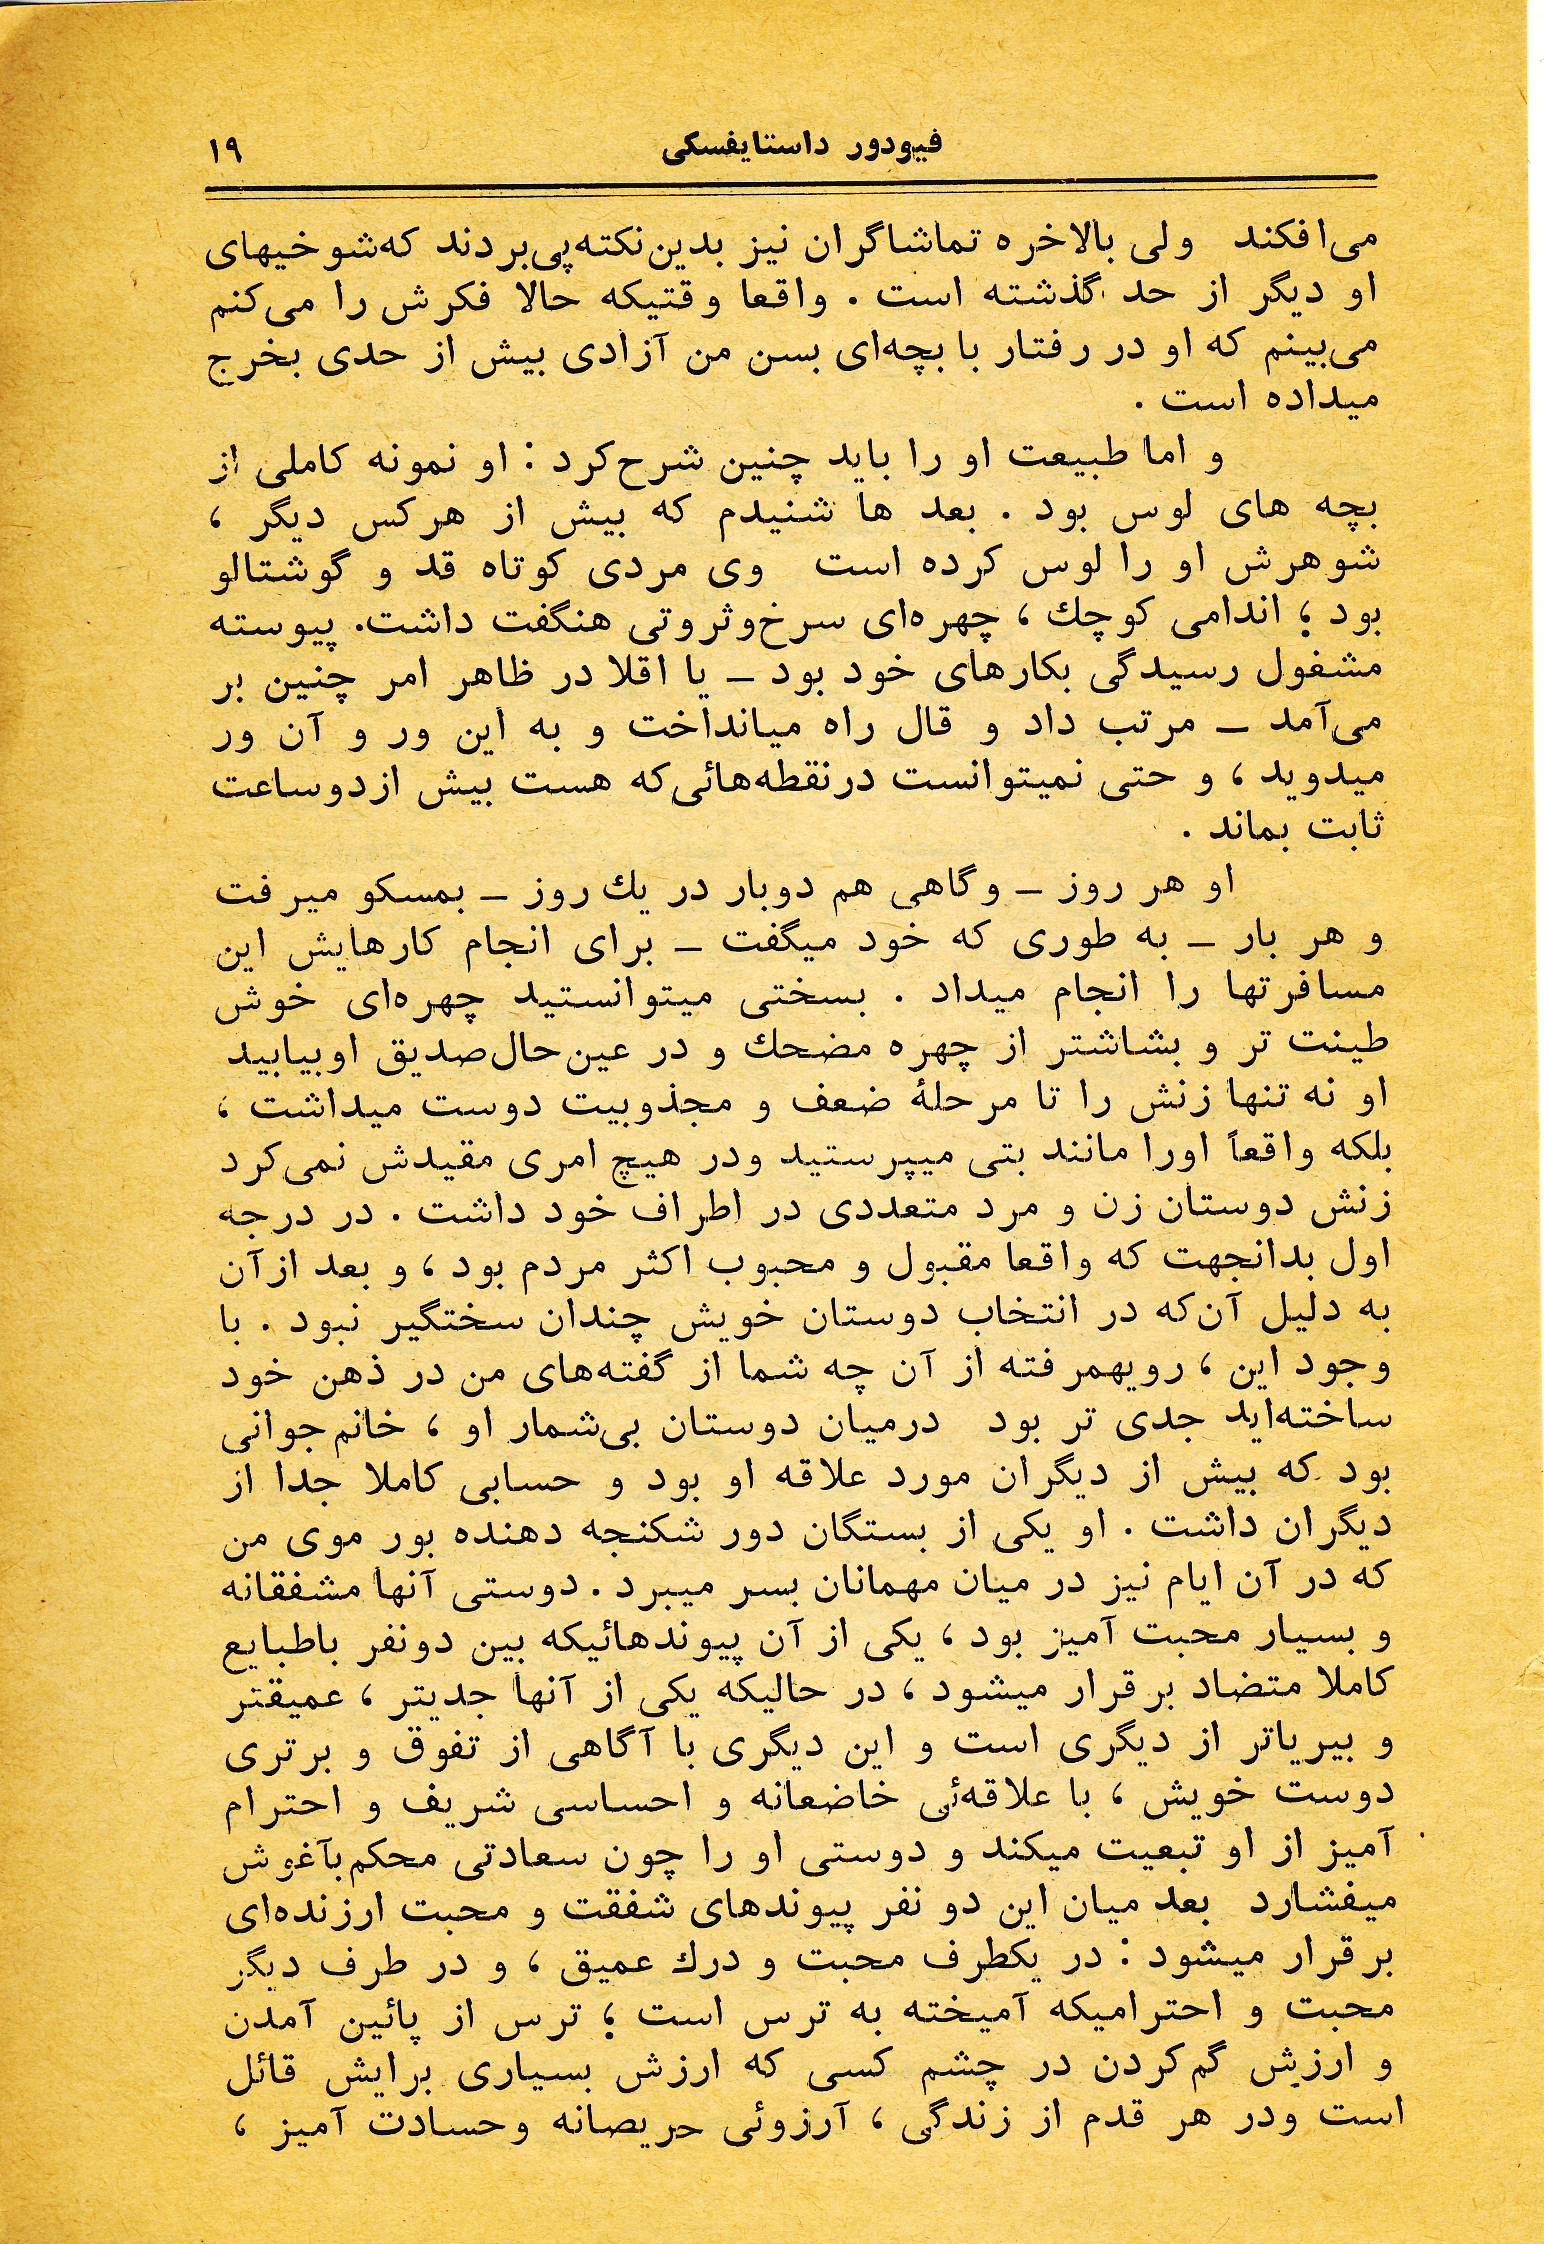 فیودور داستایفسکی ۱۹
می‌افکند ولی بالاخره تماشاگران نیز بدین‌نکته‌پی‌بردند که‌شوخیهای
او دیگر از حد گذشته است . واقعا وقتیکه حالا فکرش را می‌کنم
می‌بینم که او در رفتار با بچه‌ای بسن من آزادی بیش از حدی بخرج
میداده است .
و اما طبیعت او را باید چنین شرح‌کرد : او نمونه کاملی از
بچه های لوس بود . بعد ها شنیدم که بیش از هرکس دیگر ،
شوهرش او را لوس کرده است وی مردی کوتاه قد و گوشتالو
بود ؛ اندامی کوچك ، چهره‌ای سرخ‌وثروتی هنگفت داشت. پیوسته
مشغول رسیدگی بکارهای خود بود ـ یا اقلا در ظاهر امر چنین بر
می‌آمد ـ مرتب داد و قال راه میانداخت و به این ور و آن ور
میدوید ، و حتی نمیتوانست درنقطه‌هائی‌که هست بیش ازدوساعت
ثابت بماند .
او هر روز ـ وگاهی هم دوبار در یك روز ـ بمسکو میرفت
و هر بار ـ به طوری که خود میگفت ـ برای انجام کارهایش این
مسافرتها را انجام میداد . بسختی میتوانستید چهره‌ای خوش
طینت تر و بشاشتر از چهره مضحك و در عین‌حال‌صدیق اوبیابید
او نه تنها زنش را تا مرحلهٔ ضعف و مجذوبیت دوست میداشت ،
بلکه واقعاً اورا مانند بتی میپرستید ودر هیچ امری مقیدش نمی‌کرد
زنش دوستان زن و مرد متعددی در اطراف خود داشت . در درجه
اول بدانجهت که واقعا مقبول و محبوب اکثر مردم بود ، و بعد ازآن
به دلیل آن‌که در انتخاب دوستان خویش چندان سختگیر نبود . با
وجود این ، رویهمرفته از آن چه شما از گفته‌های من در ذهن خود
ساخته‌اید جدی تر بود درمیان دوستان بی‌شمار او ، خانم‌جوانی
بود که بیش از دیگران مورد علاقه او بود و حسابی کاملا جدا از
دیگران داشت . او یکی از بستگان دور شکنجه دهنده بور موی من
که در آن ایام نیز در میان مهمانان بسر میبرد . دوستی آنها مشفقانه
و بسیار محبت آمیز بود ، یکی از آن پیوندهائیکه بین دونفر باطبایع
کاملا متضاد برقرار میشود ، در حالیکه یکی از آنها جدیتر ، عمیقتر
و بیریاتر از دیگری است و این دیگری با آگاهی از تفوق و برتری
دوست خویش ، با علاقه‌ئی خاضعانه و احساسی شریف و احترام
آمیز از او تبعیت میکند و دوستی او را چون سعادتی محکم‌بآغوش
میفشارد بعد میان این دو نفر پیوندهای شفقت و محبت ارزنده‌ای
برقرار میشود : در یکطرف محبت و درك عمیق ، و در طرف دیگر
محبت و احترامیکه آمیخته به ترس است ؛ ترس از پائین آمدن
و ارزش گم‌کردن در چشم کسی که ارزش بسیاری برایش قائل
است ودر هر قدم از زندگی ، آرزوئی حریصانه وحسادت آمیز ،